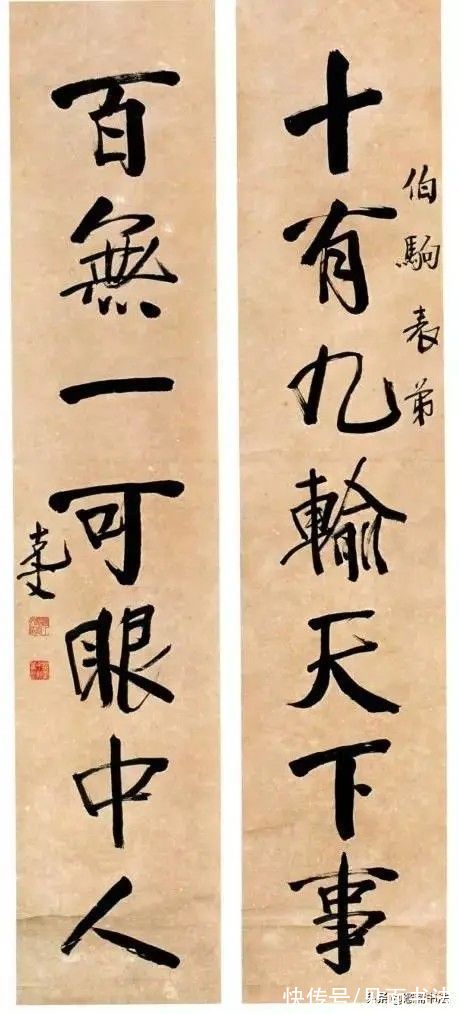 伯駒表弟
十有九輸天下事
百無一可眼中人
克文
快传号/
书法